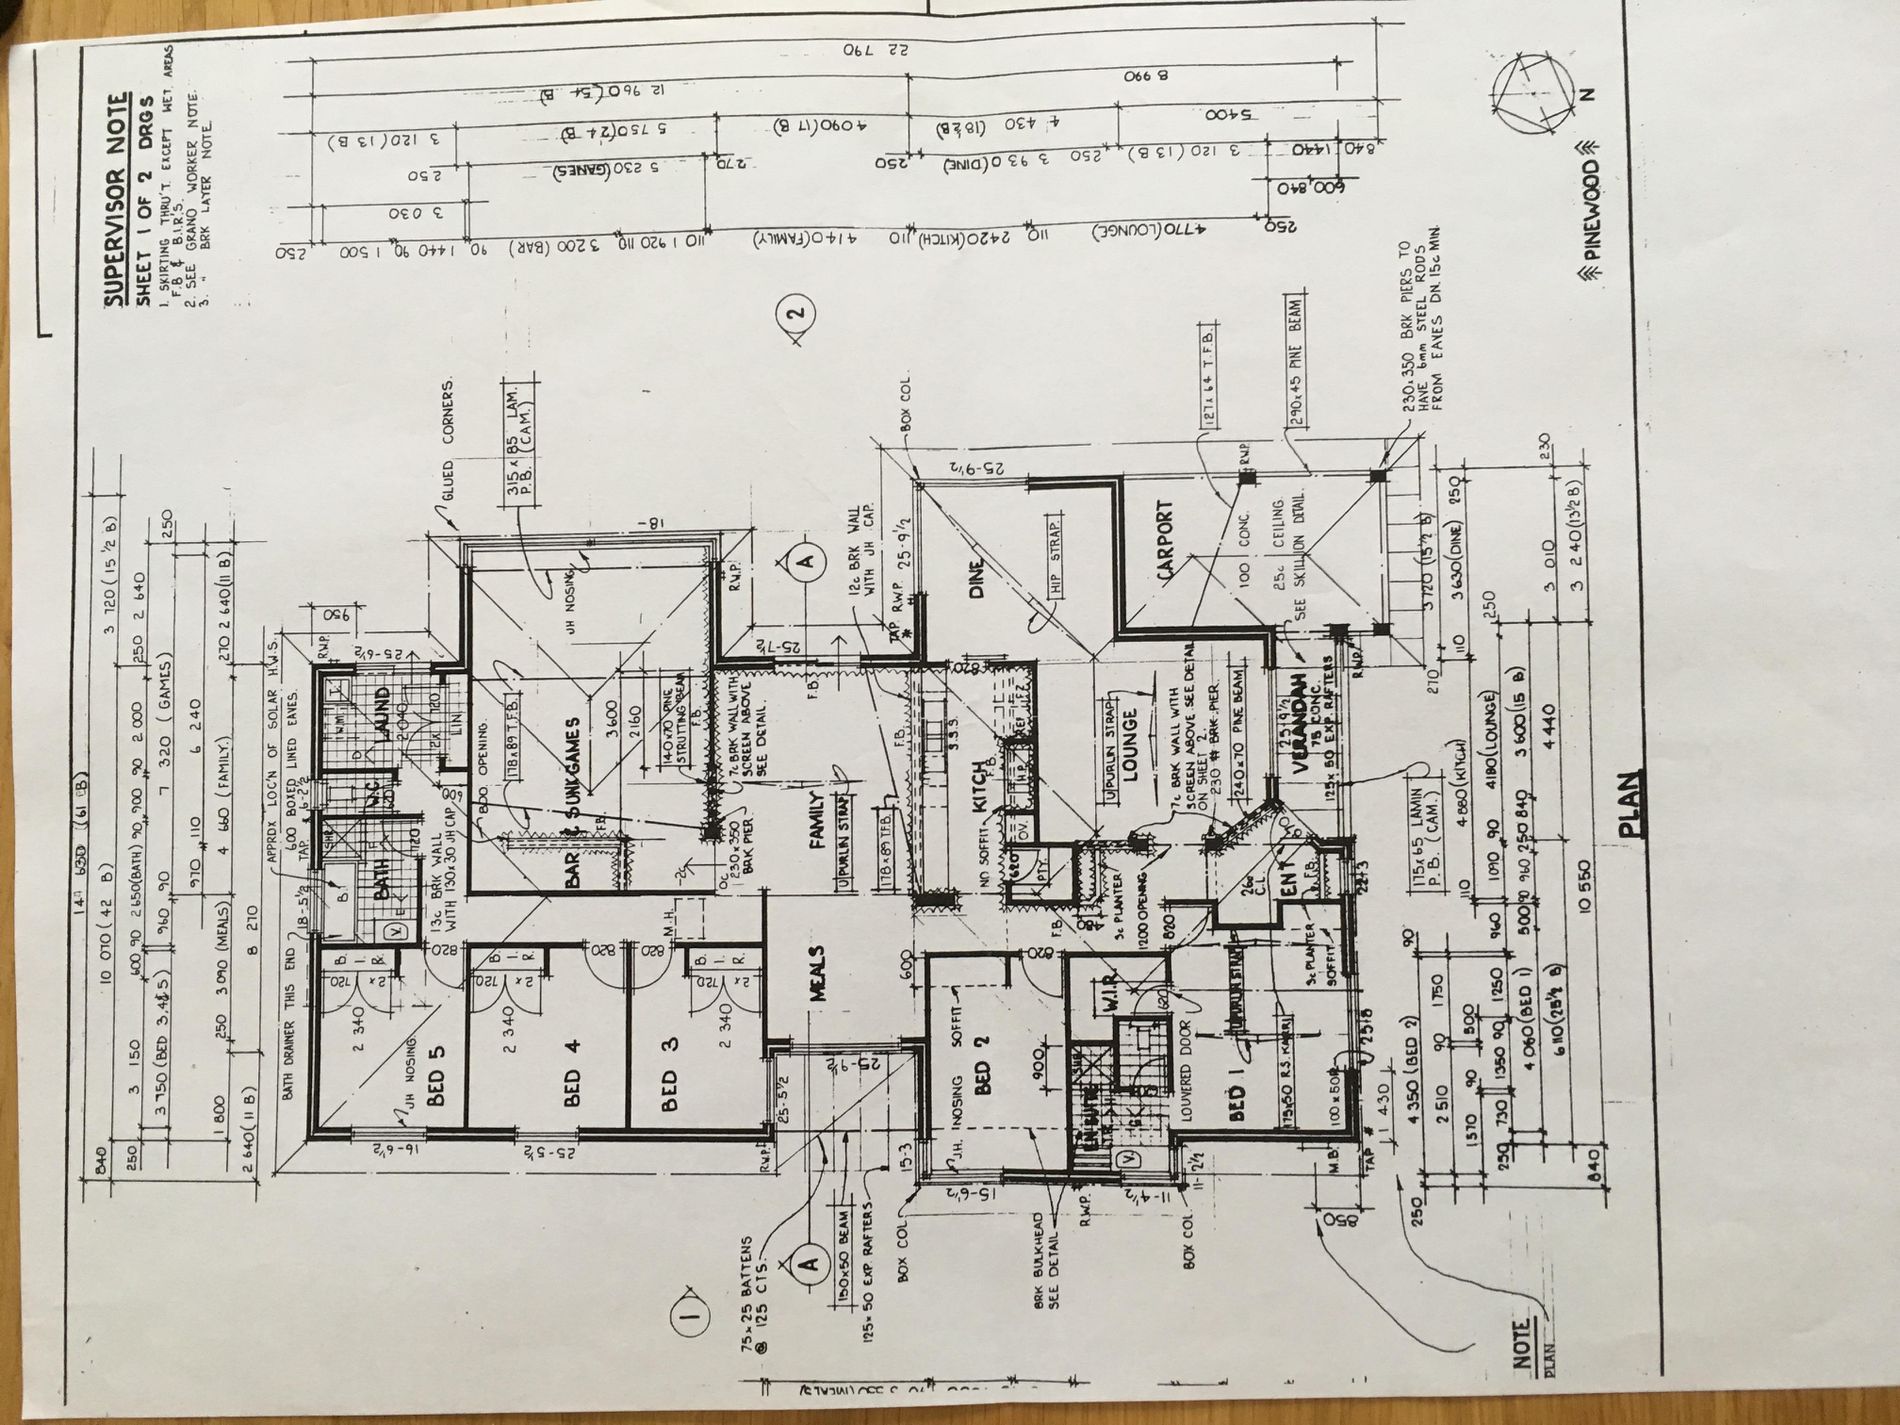 SUPERVISOR NOTE
SHEET 1 OF 2 DRGS
1. SKIRTING THRU'T. EXCEPT WET AREAS
F.B & B.I.R'S.
2. SEE GRANO. WORKER NOTE.
3. " BRK LAYER NOTE.
22 790
12 960 (54 B)
8 990
3 120 (13 B)
5 750 (24 B)
4 090 (17 B)
4 430 (18½ B)
5400
250
5 230 (GAMES)
270
250
3 930 (DINE)
250
3 120 (13 B)
1440
840
3 030
600
840
250
1 500
90
1440
90
3 200 (BAR)
110
1 920
110
4 140 (FAMILY)
110
2420 (KITCH)
110
4770 (LOUNGE)
250
N
PINEWOOD
14 630 (61 B)
840
10 070 (42 B)
3 720 (15 ½ B)
250
3 150
600
90
2650 (BATH)
90
900
90
2 000
250
2 640
3 750 (BED 3,4&5)
960
90
7 320 (GAMES)
250
970
110
6 240
1 800
250
3 090 (MEALS)
4 660 (FAMILY)
270
2 640 (11 B)
2 640 (11 B)
8 270
BATH DRAINER THIS END
APPROX LOC'N OF SOLAR H.W.S.
600 BOXED LINED EAVES.
TAP
18-5½
6-2½
R.W.P.
950
25-6½
GLUED CORNERS.
315 x 85 LAM.
P.B. (CAM.)
18-
2
A
BOX COL.
12c BRK WALL
WITH JH CAP.
25-9½
25-9½
127 x 64 T.F.B.
290 x 45 PINE BEAM
230 x 350 BRK PIERS TO
HAVE 6mm STEEL RODS
FROM EAVES DN. 15c MIN.
LAUND
W.M.
T.
D
2 040
2x 720
LIN.
W.C.
620
SHR
BATH
B.
V.
720
13c BRK WALL
WITH 130 x 30 JH CAP.
600. OPENING.
178 x 89 T.F.B.
JH NOSING
BAR & SUNK GAMES
3 600
2 160
140 x 70 PINE
STRUTTING BEAM
F.B.
F.B.
R.W.P.
25-7½
7c BRK WALL WITH
SCREEN ABOVE
SEE DETAIL.
230 x 350
BRK PIER.
-2c
0c
FAMILY
U PURLIN STRAP
178 x 89 T.F.B.
F.B.
F.B.
TAP
R.W.P.
DINE
HIP STRAP.
KITCH
F.B.
S.S.S.
820
REF
FZ
H.P.
OV.
NO SOFFIT
620
PTY.
LOUNGE
U PURLIN STRAP
7c BRK WALL WITH
SCREEN ABOVE SEE DETAIL
ON SHEET 2.
230 # BRK PIER.
240 x 70 PINE BEAM
CARPORT
100 CONC.
25c CEILING
SEE SKILLION DETAIL.
R.W.P.
VERANDAH
75 CONC.
125 x 50 EXP. RAFTERS
25-19½
R.W.P.
ENT
26c
C.L.
F.B.
22-3
3c PLANTER
1200 OPENING
820
F.B.
3c PLANTER
SOFFIT
B. I. R.
2x 720
820
2 340
JH NOSING
BED 5
16-6½
B. I. R.
2x 720
820
2 340
BED 4
25-5½
B. I. R.
2x 720
820
2 340
BED 3
M.H.
MEALS
600
25-5½
R.W.P.
BED 2
J.H. NOSING
SOFFIT
820
900
15-3
15-6½
W.I.R.
620
ENSUITE
SHR
V.
LOUVERED DOOR
BED 1
U PURLIN STRAP
175 x 50 R.S. KARRI
100 x 50 R.
25-8
11-4½
11-2½
R.W.P.
M.B.
TAP
BOX COL.
BOX COL.
BRK BULKHEAD
SEE DETAIL
1
A
75 x 25 BATTENS
@ 125 CTS.
150 x 50 BEAM
125 x 50 EXP. RAFTERS
175 x 65 LAMIN
P.B. (CAM.)
1 430
250
4 350 (BED 2)
90
110
4 880 (KITCH)
110
3 630 (DINE)
250
3 720 (15 ½ B)
270
2 510
90
1 750
1570
90
1 500
960
1090
90
4180 (LOUNGE)
250
250
730
1350
90
1250
500
90
960
250
840
3 600 (15 B)
3 010
230
4 060 (BED 1)
4 440
6 110 (25½ B)
3 240 (13½ B)
840
10 550
PLAN
NOTE
PLAN